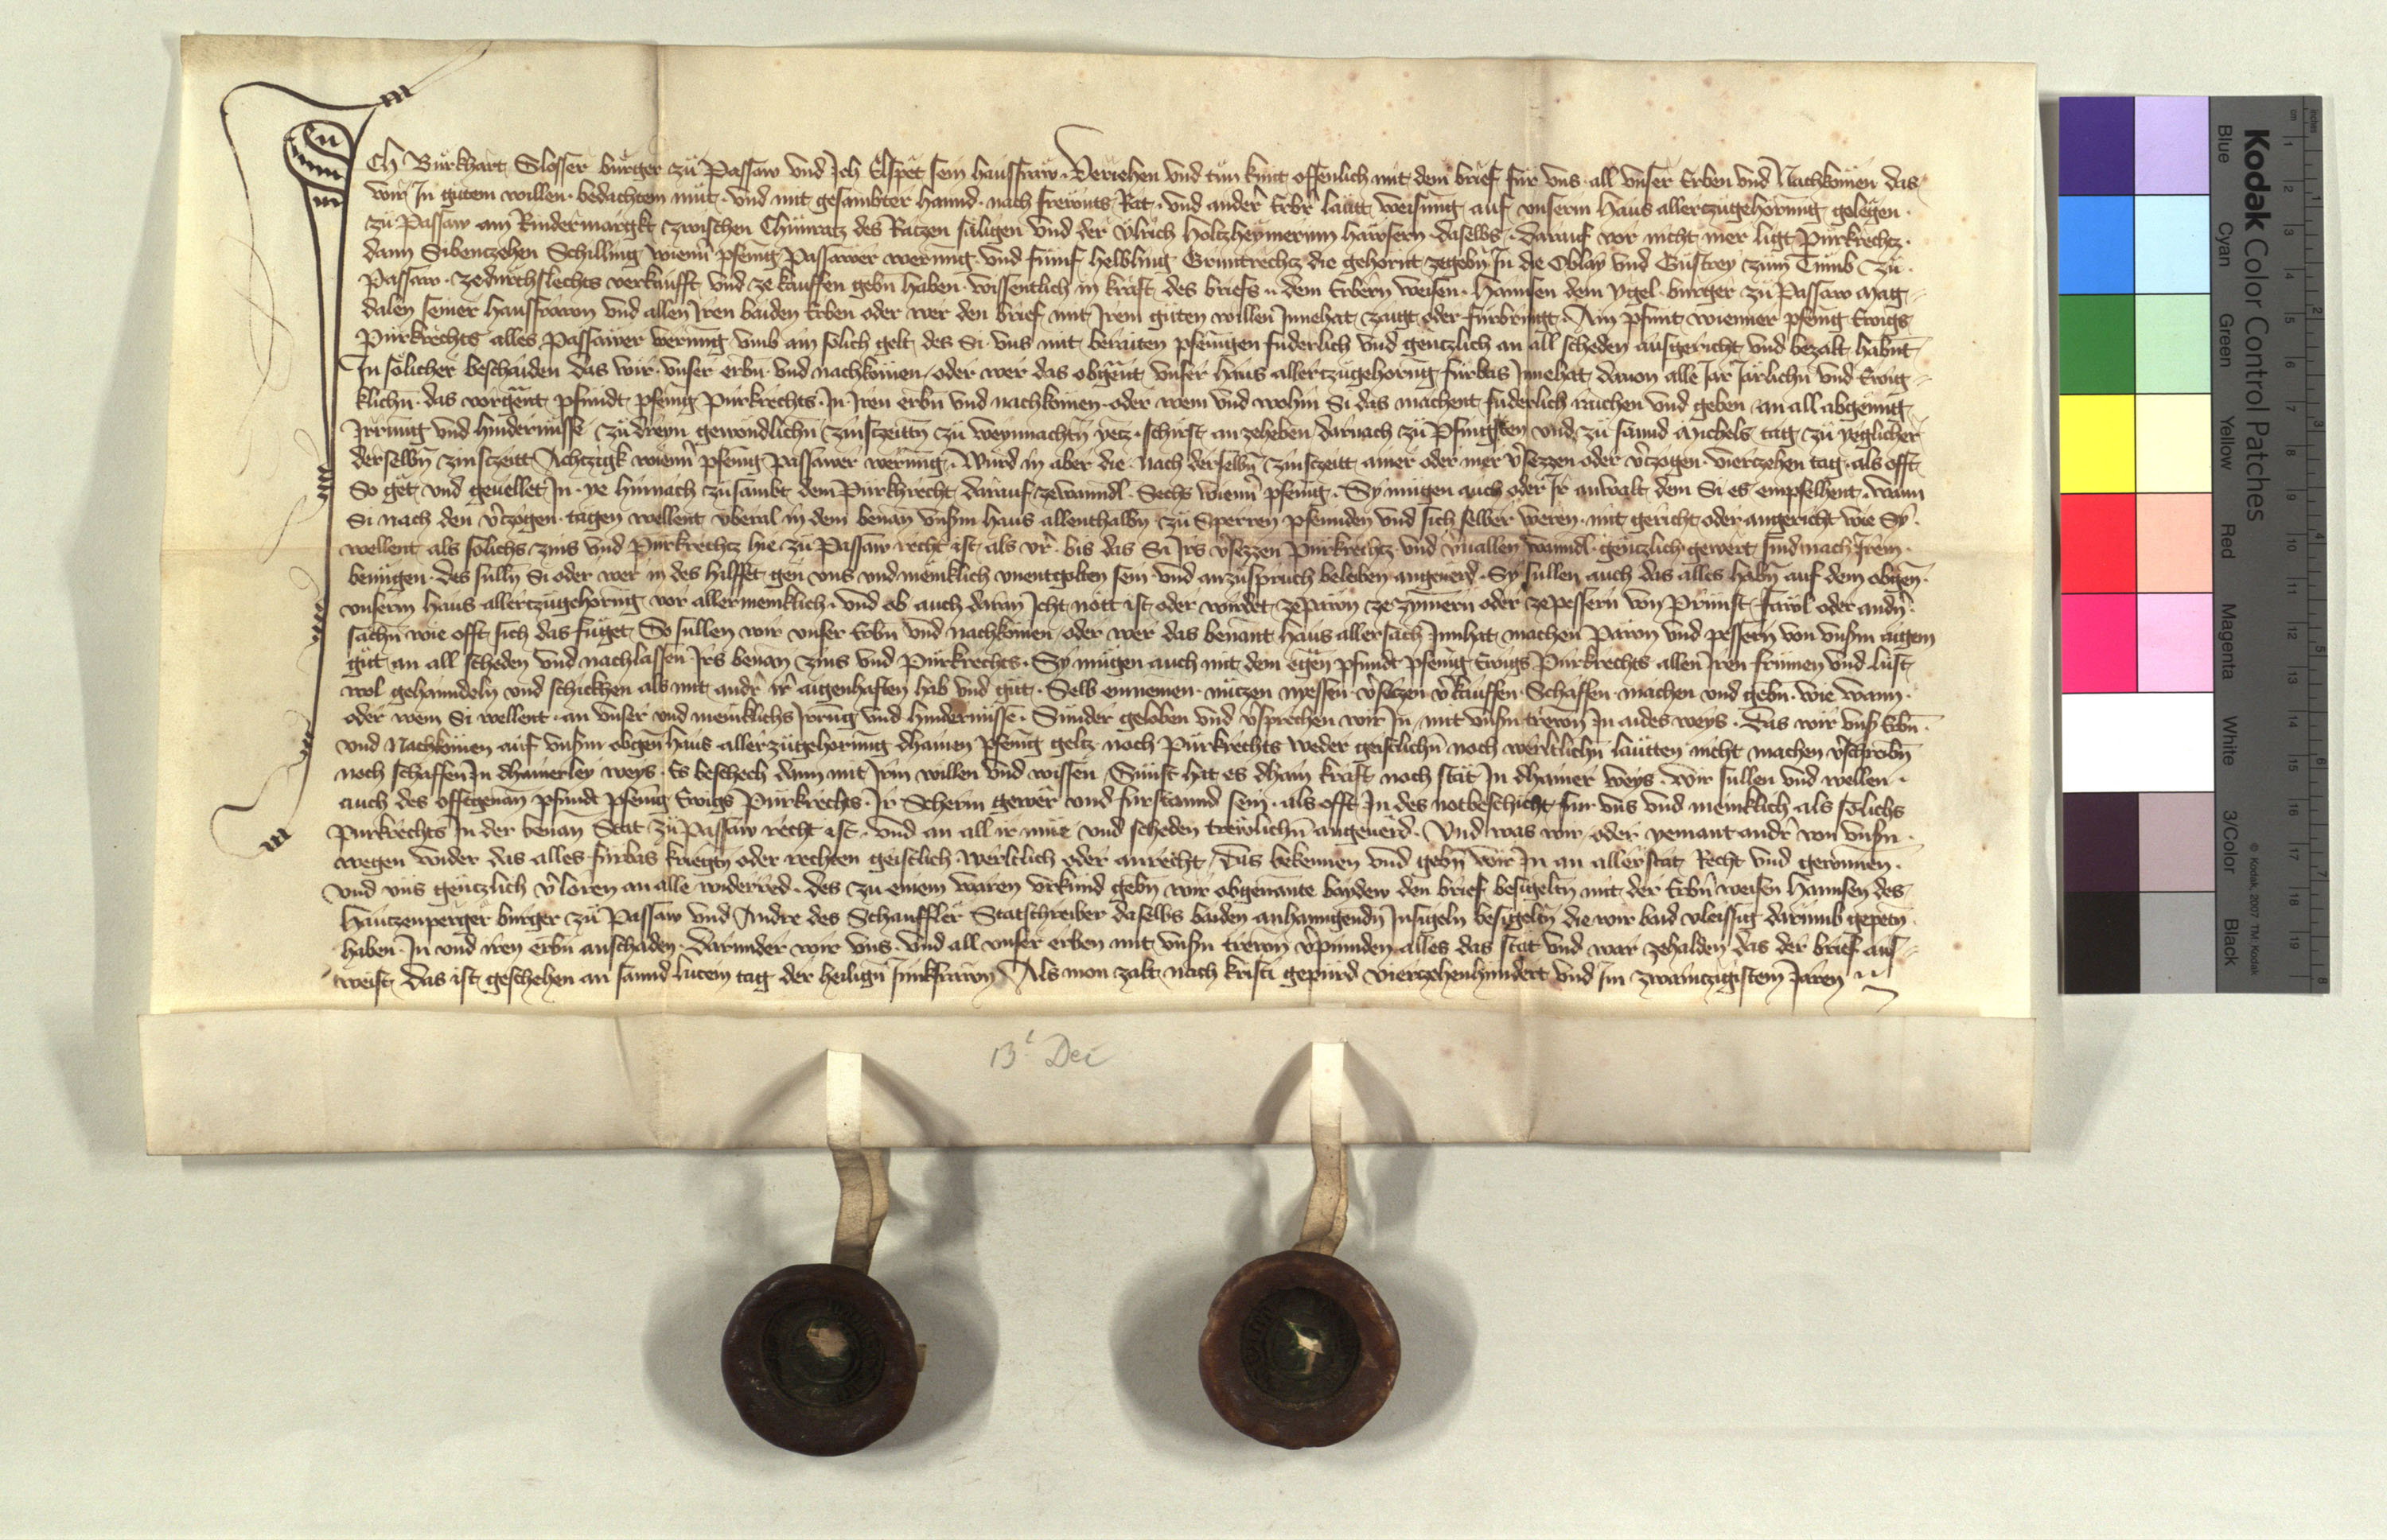 ICh Burkhart Slosser burger zu Passaw und Ich Elspet sein hausfraw. Veriehen und tun kunt offenlich mit dem brief fur uns all unser Erben und Nachkomen das
wir In gutem willen bedachtem mut und mit gesambter hannd nach frewnts Rat und ander Erbr lautt weisung auf unserm Haus allerzugehorung gelegen
zu Passaw am Rindermargkt zwischen Chunratz des Ratzen saligen und der Ulrich Holtzheymerinn hawsern daselbs. darauf vor nicht mer ligt Purkrechtz
dann Sibentzehen Schilling wienn pfenig Passawer werung und funf helbling Gruntrechtz die gehornt zegebn In die Oblay und Gustrey zum Tumb zu
Passaw. zedurchslechts verkaufft und ze kauffen gebn haben wissentlich in kraft des briefs dem Erbern weisen Hannsen dem Ygel burger zu Passaw Mag-
dalen seiner hausfrawn und allen Iren baiden Erben oder wer den brief mit Irem guten willen Innehat zaigt oder furbringt. Ain pfunt wienner pfenig Ewigs
Purkrechts alles Passawer werung umb ain solich gelt des Si uns mit beraiten pfenigen fuderlich und gentzlich an all scheden ausgericht und bezalt habnt
In solicher beschaiden das wir unser erbn und nachkomen oder wer das obgent unser Haus allerzugehorung furbas Innehat davon alle Jar Jarlichn und Ewig-
klichn das vorgent pfundt pfenig purkrechts In Iren erbn und nachkomen oder wem und wohin Si das machent fuderlich raichen und geben an all abgenng
Irrung und hindernusse zu dreyn gewondlichn zinstzeittn zu weynnachtn yetz schirst anzeheben darnach zu Pfingsten und zu sannd Michels tag zu yeglicher
derselbn zinstzeitt Achtzigk wienn pfenig passawer werung. Wurd in aber die nach derselbn zinstzeitt ainer oder mer vsezzen oder vtzogen viertzehen tag als offt
So get und gevellet In ye hinnach zusambt dem Purkhrecht darauf zewanndl Sechs wienn pfenig. Sy mugen auch oder Ir anwalt dem Si es empfelhent wann
Si nach den vtzogen tagen wellent uberal in dem benan unsm haus allenthalbn zu Sperren pfennden und sich selber weren mit gericht oder angericht wie Sy
wellent als solichs zins und Purkrechtz hie zu Passaw recht ist als vr bis das Si Irs vsezzen Purkrechtz und vuallen wanndl gentzlich gewert sind nach Irem
benugen. des sulln Si oder wer in des hilffet gen uns und meniklich unentgolten sein und anzuspruch beleiben angeuerd. Sy sullen auch das alles habn auf dem obgen
unserm haus allerzugehorung vor allermeniklich und ob auch daran Icht nott ist oder wurdet zepawn ze zymern oder zepessern von Prunst fawl oder andn
sachn wie offt sich das fuget So sullen wir unser Erbn und nachkomen oder wer das benant haus allersach Innhat machen pawn und pessern von unsm aigem
gut an all scheden und nachlassen Irs benan zins und Purkrechts. Sy mugen auch mit dem egen pfundt pfenig Ewigs Purkrechts allen Iren frumen und lust
wol gehanndeln und schickhen als mit andr ir aigenhaften hab und gut. Selb ennemen nutzen nyessen vsetzen vkauffen Schaffen machen und gebn wie wann
oder wem Si wellent an unser und meniklichs Irrug und hindernusse. Sunder geloben und vsprechen wir In mit unsn trewn In aides weys. das wir uns Erbn
und Nachkomen auf unsm obgen haus allerzugehorung dhainen pfenig geltz noch Purkrechts weder geistlichn noch werltlichn lautten nicht machen vschreibn
noch schaffen In dhainerley weys. Es beschech dann mit Irm willen und wissen Sunst hat es dhain kraft noch stat In dhainer weys. wir sullen und wellen
auch des offtgenan pfundt pfenig Ewigs Purkrechts Ir Scherm gewer und furstannd sein als offt In des notbeschicht fur uns und meniklich als solichs
purkrechts In der benan Stat zu Passaw recht ist und an all ir mue und scheden trewlichn angeuerd. Und was wir oder yemant andr von unsn
wegen wider das alles furbas kriegtn oder rechten geistlich werltlich oder anrecht Das bekennen und gebn wir In an aller stat Recht und gewunnen
und uns gentzlich vloren an alle widerred. des zu einem waren Urkund gebn wir obgenante baydew den brief besigeltn mit der Erbn weisen Hannsen des
Hautzenperger burger zu Passaw und Andre des Schauffler Statschreiber daselbs baiden anhanngendn Insigeln besigeltn die wir baid vleissig darumb gepetn
haben In und iren erbn anschaden darunder wir uns und all unser erben mit unsn trewn vpinnden alles das stat und war zehalden das der brief aus-
weist Das ist geschehen an sannd lucein tag der heilign Junkfrawn Als mon zalt nach kristi gepurd viertzehenhundert und Im zwaintzigistem Jaren
13t Dec
Kodak Color Control Patches
Blue Cyan Green Yellow Red Magenta White 3/Color Black
© Kodak, 2007 TM: Kodak